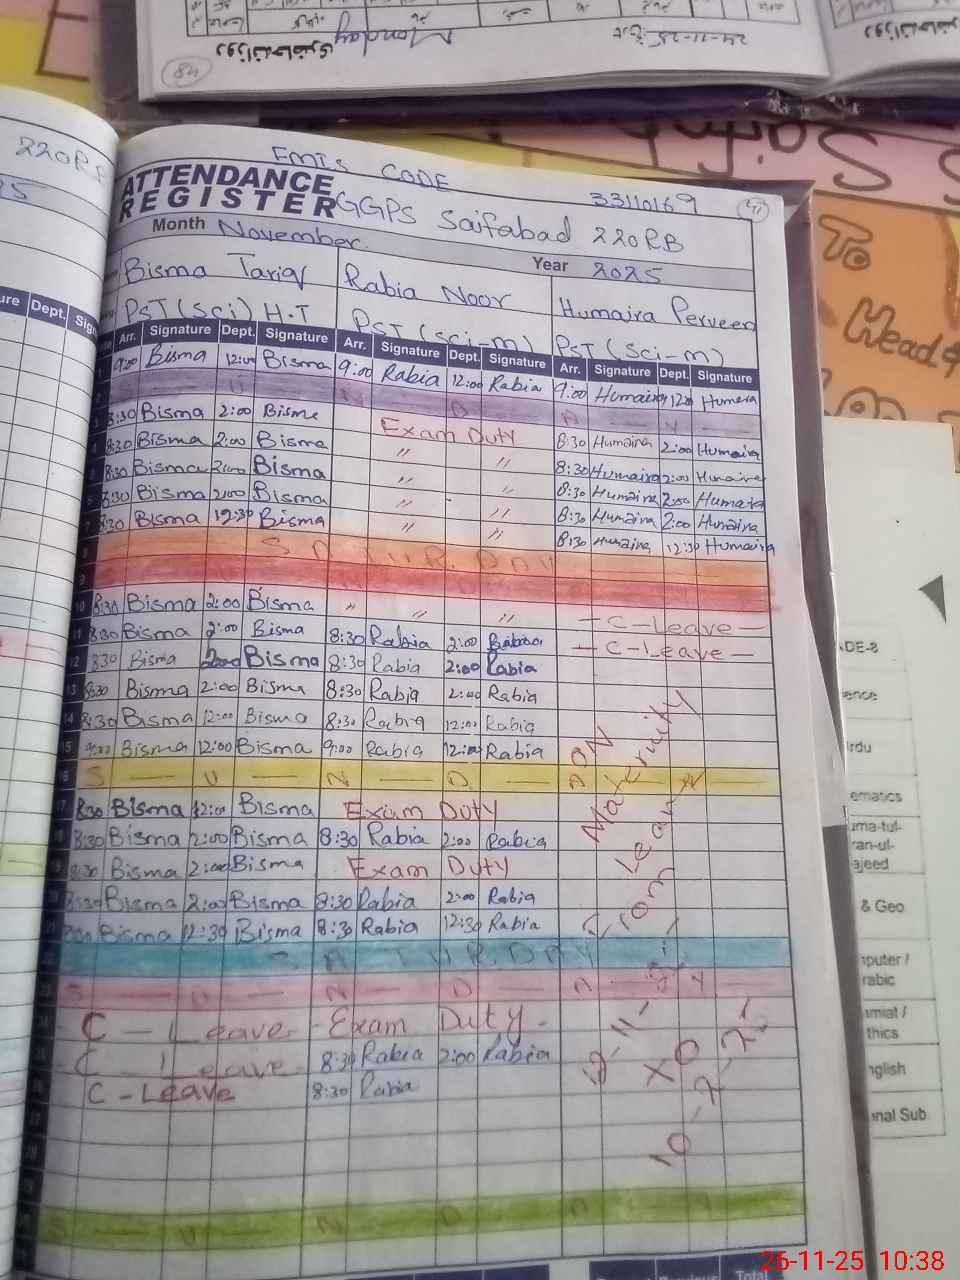 Monday
24-11-25
84
220RB
EMIS CODE 33110169
41
ATTENDANCE
REGISTER GGPS Saifabad 220RB
Month November Year 2025
Bisma Tariq Rabia Noor Humaira Perveen
PST (Sci) H.T PST (Sci-m) PST (Sci-m)
Arr. Signature Dept. Signature Arr. Signature Dept. Signature Arr. Signature Dept. Signature
1 9:00 Bisma 12:00 Bisma 9:00 Rabia 12:00 Rabia 9:00 Humaira 12:00 Humera
2 S U N D A Y
3 8:30 Bisma 2:00 Bisme Exam Duty 8:30 Humaira 2:00 Humaira
4 8:30 Bisma 2:00 Bisma " " 8:30 Humaira 2:00 Humaira
5 8:30 Bisma 2:00 Bisma " " 8:30 Humaira 2:00 Humaira
6 8:30 Bisma 2:00 Bisma " " 8:30 Humaira 2:00 Humaira
7 8:30 Bisma 12:30 Bisma " " 8:30 Humaira 12:30 Humaira
8 S A T U R D A Y
9 S U N D A Y
10 8:30 Bisma 2:00 Bisma " " " - C-Leave -
11 8:30 Bisma 2:00 Bisma 8:30 Rabia 2:00 Rabia - C-Leave -
12 830 Bisma 2:00 Bisma 8:30 Rabia 2:00 Rabia
13 8:30 Bisma 2:00 Bisma 8:30 Rabia 2:00 Rabia
14 8:30 Bisma 12:00 Bisma 8:30 Rabia 12:00 Rabia
15 9:00 Bisma 12:00 Bisma 9:00 Rabia 12:00 Rabia
16 S U N D A Y
17 8:30 Bisma 12:00 Bisma Exam Duty
18 8:30 Bisma 2:00 Bisma 8:30 Rabia 2:00 Rabia
19 8:30 Bisma 2:00 Bisma Exam Duty
20 8:30 Bisma 2:00 Bisma 8:30 Rabia 2:00 Rabia
21 8:30 Bisma 12:30 Bisma 8:30 Rabia 12:30 Rabia
22 S A T U R D A Y
23 S U N D A Y
24 C - Leave - Exam Duty -
25 C Leave 8:30 Rabia 2:00 Rabia
26 C - Leave 8:30 Rabia
27
28
29
30 S U N D A Y
ON
Maternity
Leave
From
To
Head
ence
Urdu
ematics
ajeed
& Geo
puter /
rabic
amiat /
thics
nglish
onal Sub
26-11-25 10:38